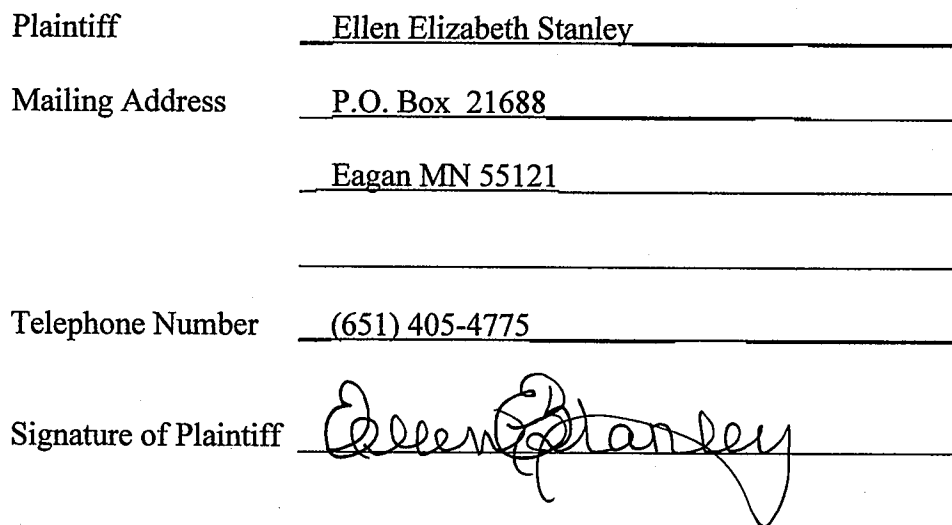 Plaintiff Ellen Elizabeth Stanley
Mailing Address P.O. Box 21688
Eagan MN 55121
Telephone Number (651) 405-4775
Signature of Plaintiff Ellen E Stanley